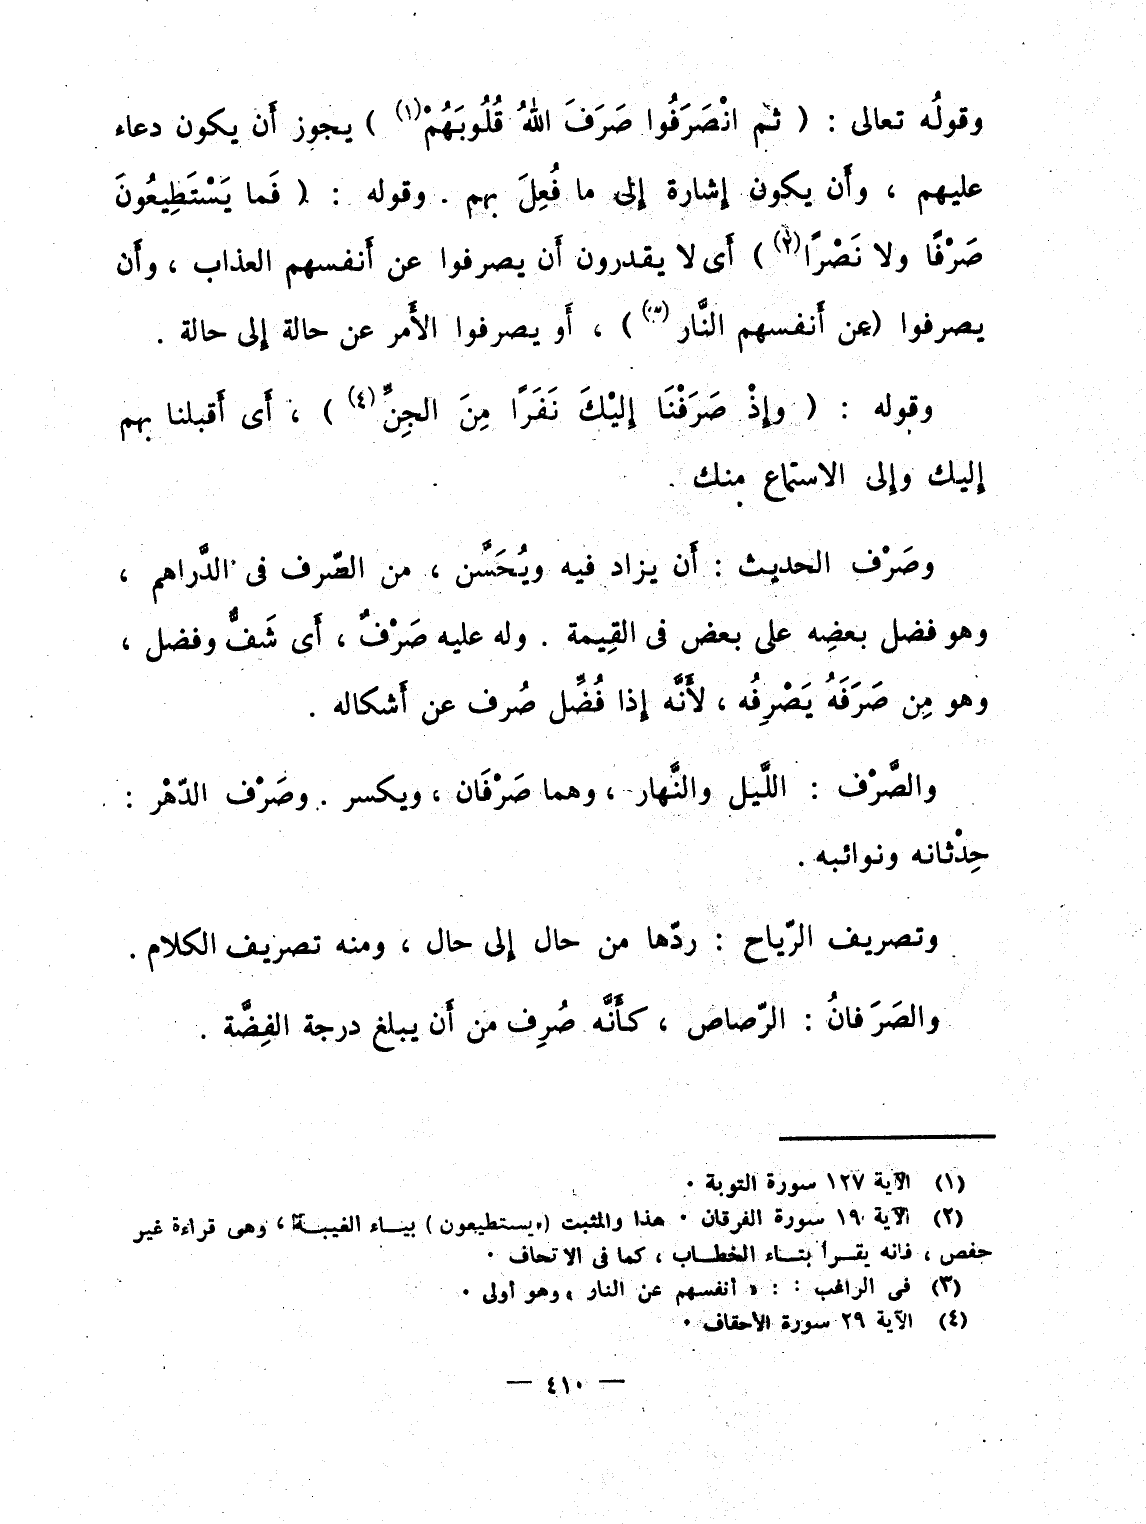 وقولُه تعالى : ( ثُم انْصَرَفُوا صَرَفَ اللهُ قُلُوبَهُمْ(١) ) يجوز أَن يكون دعاء
عليهم ، وأَن يكون إشارة إلى ما فُعِلَ بهم . وقوله : ( فَما يَسْتَطِيعُونَ
صَرْفًا ولا نَصْرًا(٢) ) أَى لا يقدرون أَن يصرفوا عن أَنفسهم العذاب ، وأَن
يصرفوا (عن أَنفسهم النَّار(٣) ) ، أَو يصرفوا الأَمر عن حالة إلى حالة .
وقوله : ( وإِذْ صَرَفْنَا إِليْكَ نَفَرًا مِنَ الجِنِّ(٤) ) ، أَى أَقبلنا بهم
إِليك وإلى الاستماع منك .
وصَرْف الحديث : أَن يزاد فيه ويُحَسَّن ، من الصّرف فى الدَّراهم ،
وهو فضل بعضِه على بعض فى القِيمة . وله عليه صَرْفٌ ، أَى شَفٌّ وفضل ،
وهو مِن صَرَفَهُ يَصْرِفُه ، لأَنَّه إذا فُضِّل صُرف عن أَشكاله .
والصَّرْف : اللَّيل والنَّهار ، وهما صَرْفَان ، ويكسر . وصَرْف الدّهْر :
حِدْثانه ونوائبه .
وتصريف الرّياح : ردّها من حال إلى حال ، ومنه تصريف الكلام .
والصَرَفانُ : الرّصاص ، كأَنَّه صُرِف من أَن يبلغ درجة الفِضَّة .
(١) الآية ١٢٧ سورة التوبة .
(٢) الآية ١٩ سورة الفرقان . هذا والمثبت («يستطيعون) بياء الغيبة ، وهى قراءة غير
حفص ، فانه يقرأ بتاء الخطاب ، كما فى الاتحاف .
(٣) فى الراغب : « أنفسهم عن النار » وهو أولى .
(٤) الآية ٢٩ سورة الأحقاف .
— ٤١٠ —